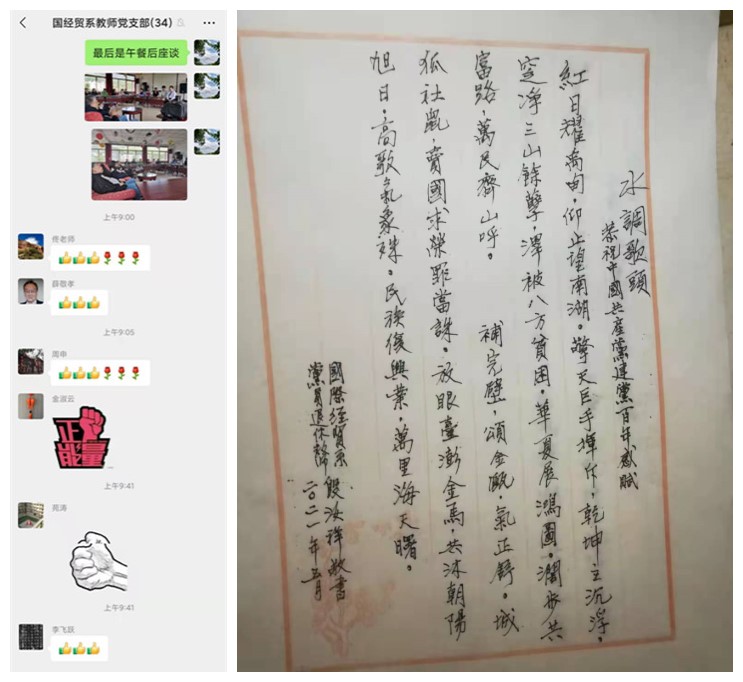 国经贸系教师党支部(34)
最后是午餐后座谈
上午9:00
佟老师
薛敬孝
上午9:05
周申
金淑云
正能量
上午9:41
苑涛
上午9:41
李飞跃
水調歌頭
恭祝中國共産黨建黨百年感賦
紅日耀禹甸,仰止望南湖。擎天巨手揮斥,乾坤主沉浮。
空净三山餘孽,澤被八方貧困,華夏展鴻圖。濶步共
富路,萬民齊山呼。 補完壁,頌金甌,氣正舒。城
狐社鼠,賣國求榮罪當誅。放眼臺澎金馬,共沐朝陽
旭日,高歌氣象殊。民族復興業,萬里海天曙。
國際經貿系
黨員退休幣 段汝祥敬書
二〇二一年五月